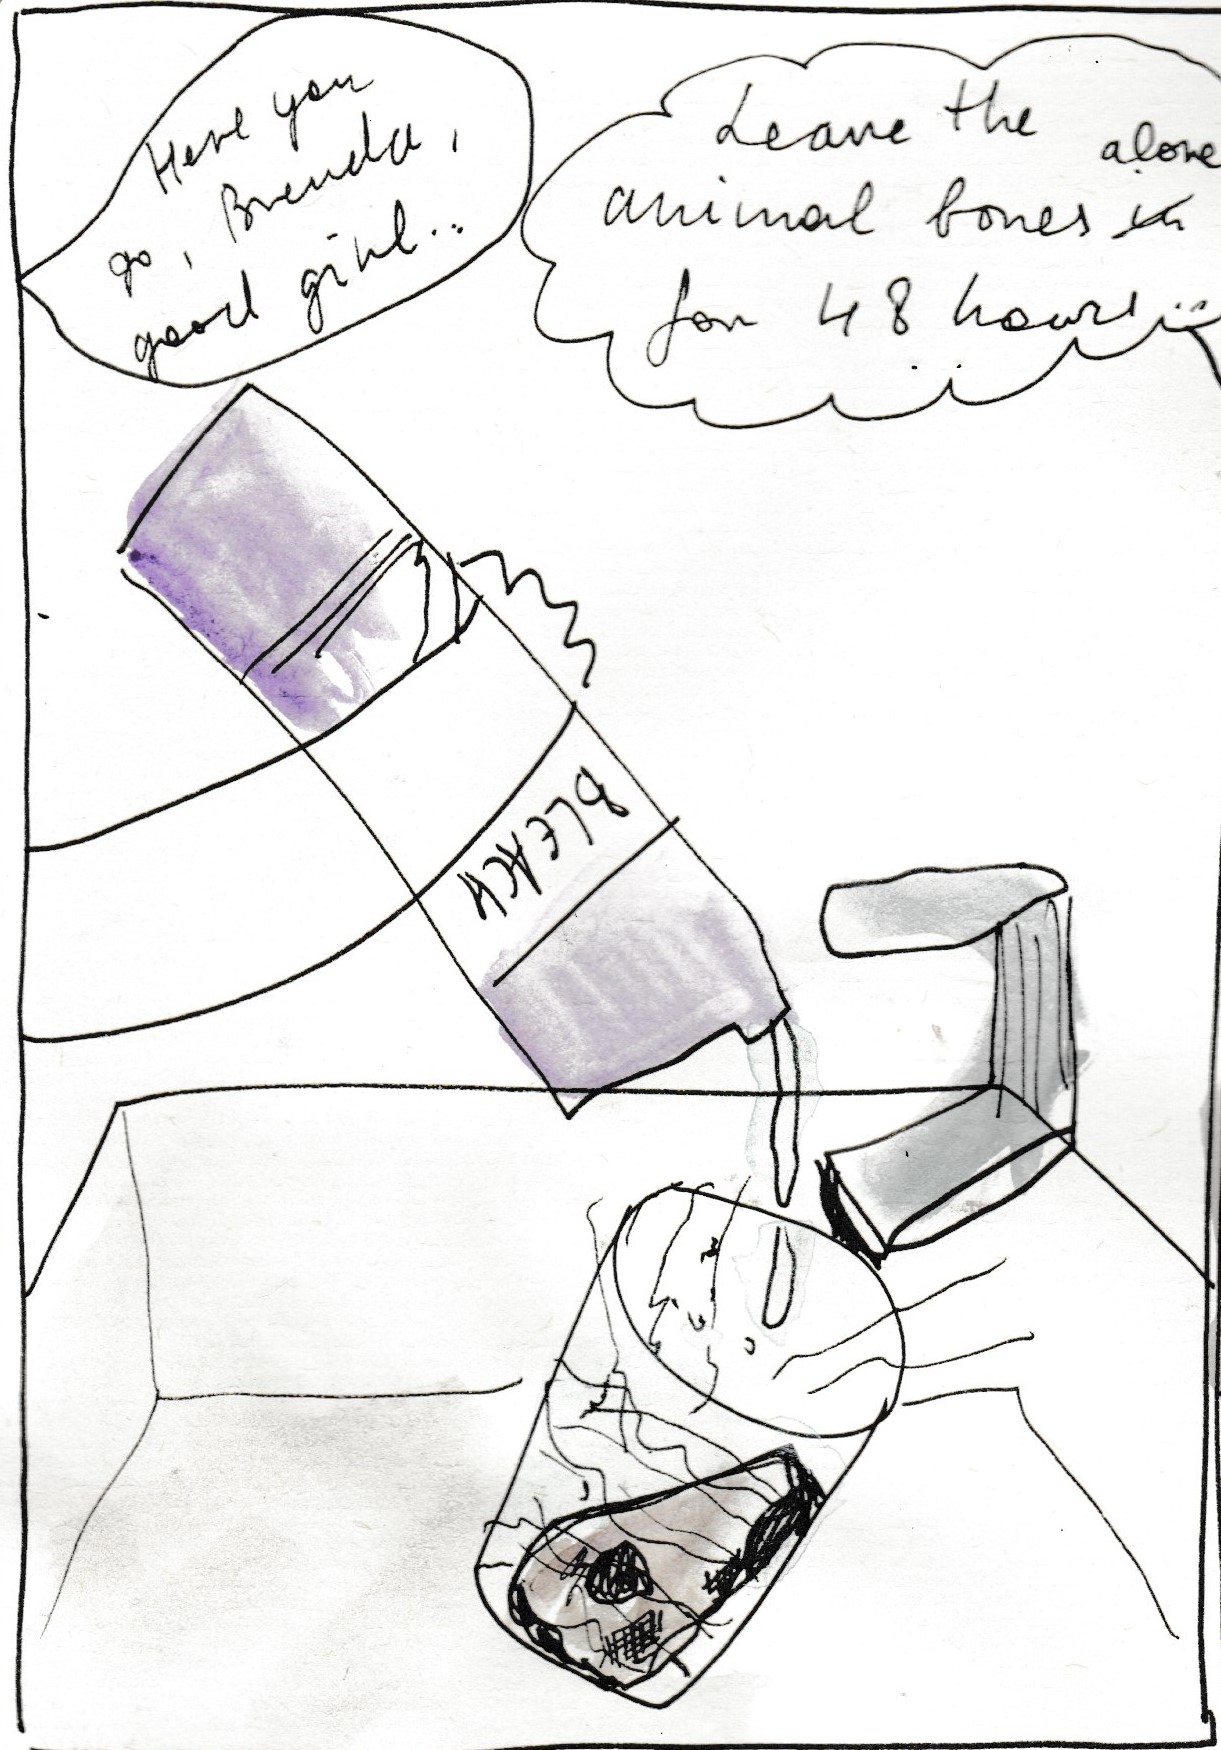 Here you
go, Brenda,
good girl..
Leave the
animal bones alone
for 48 hours...
BLEACH